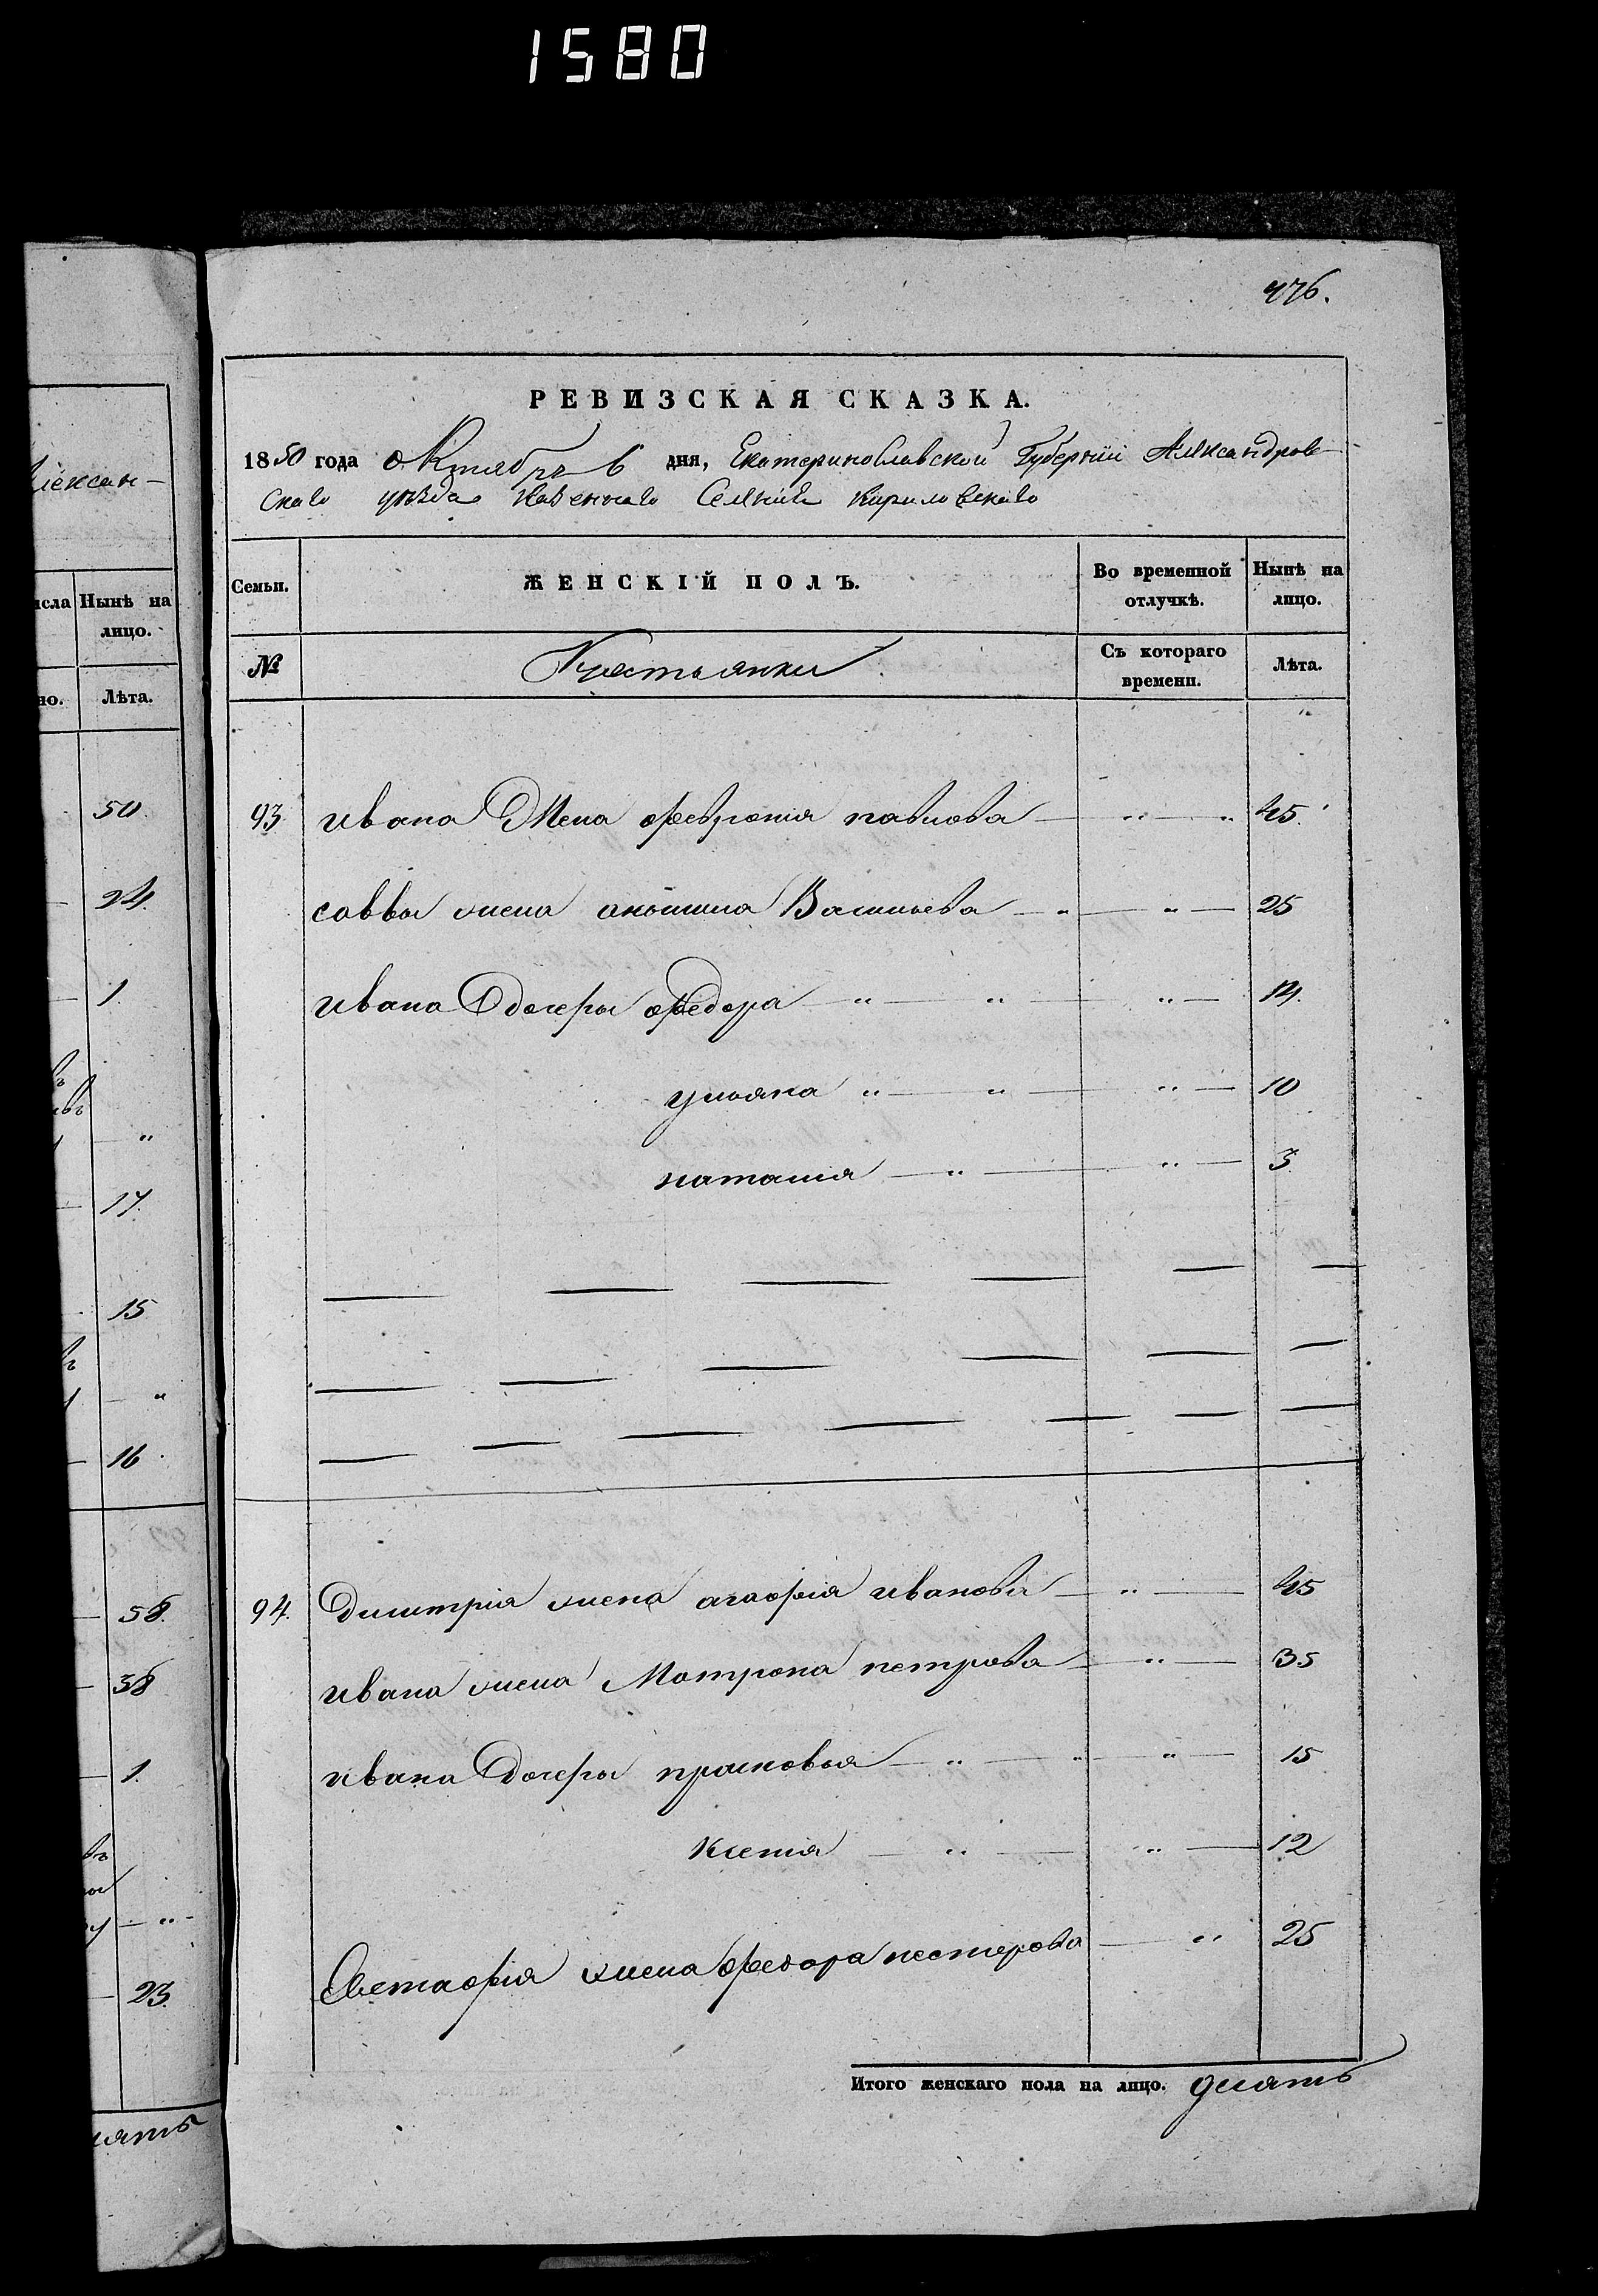 1580
лексан-
исла
Нынѣ на
лицо.
но.
Лѣта.
50.
24.
1.
17.
15
16
58.
38
1.
23.
ять
476.
РЕВИЗСКАЯ СКАЗКА.
1850 года октября 6 дня, Екатеринославской Губернии Александров-
скаго уезда казеннаго Селения кириловскаго
Семьи. ЖЕНСКІЙ ПОЛЪ. Во временной отлучкѣ. Нынѣ на лицо.
№ Крестьянки Съ котораго времени. Лѣта.
93 ивана жена феврония павлова 45.
саввы жена Васильева 25
ивана дочери федора 14.
ульяна 10
наталия 3
94. димитрия жена агафия иванова 45
ивана жена Матрона петрова 35
ивана дочери прасковья 15
Ксения 12
жена федора нестерова 25
Итого женскаго пола на лицо.